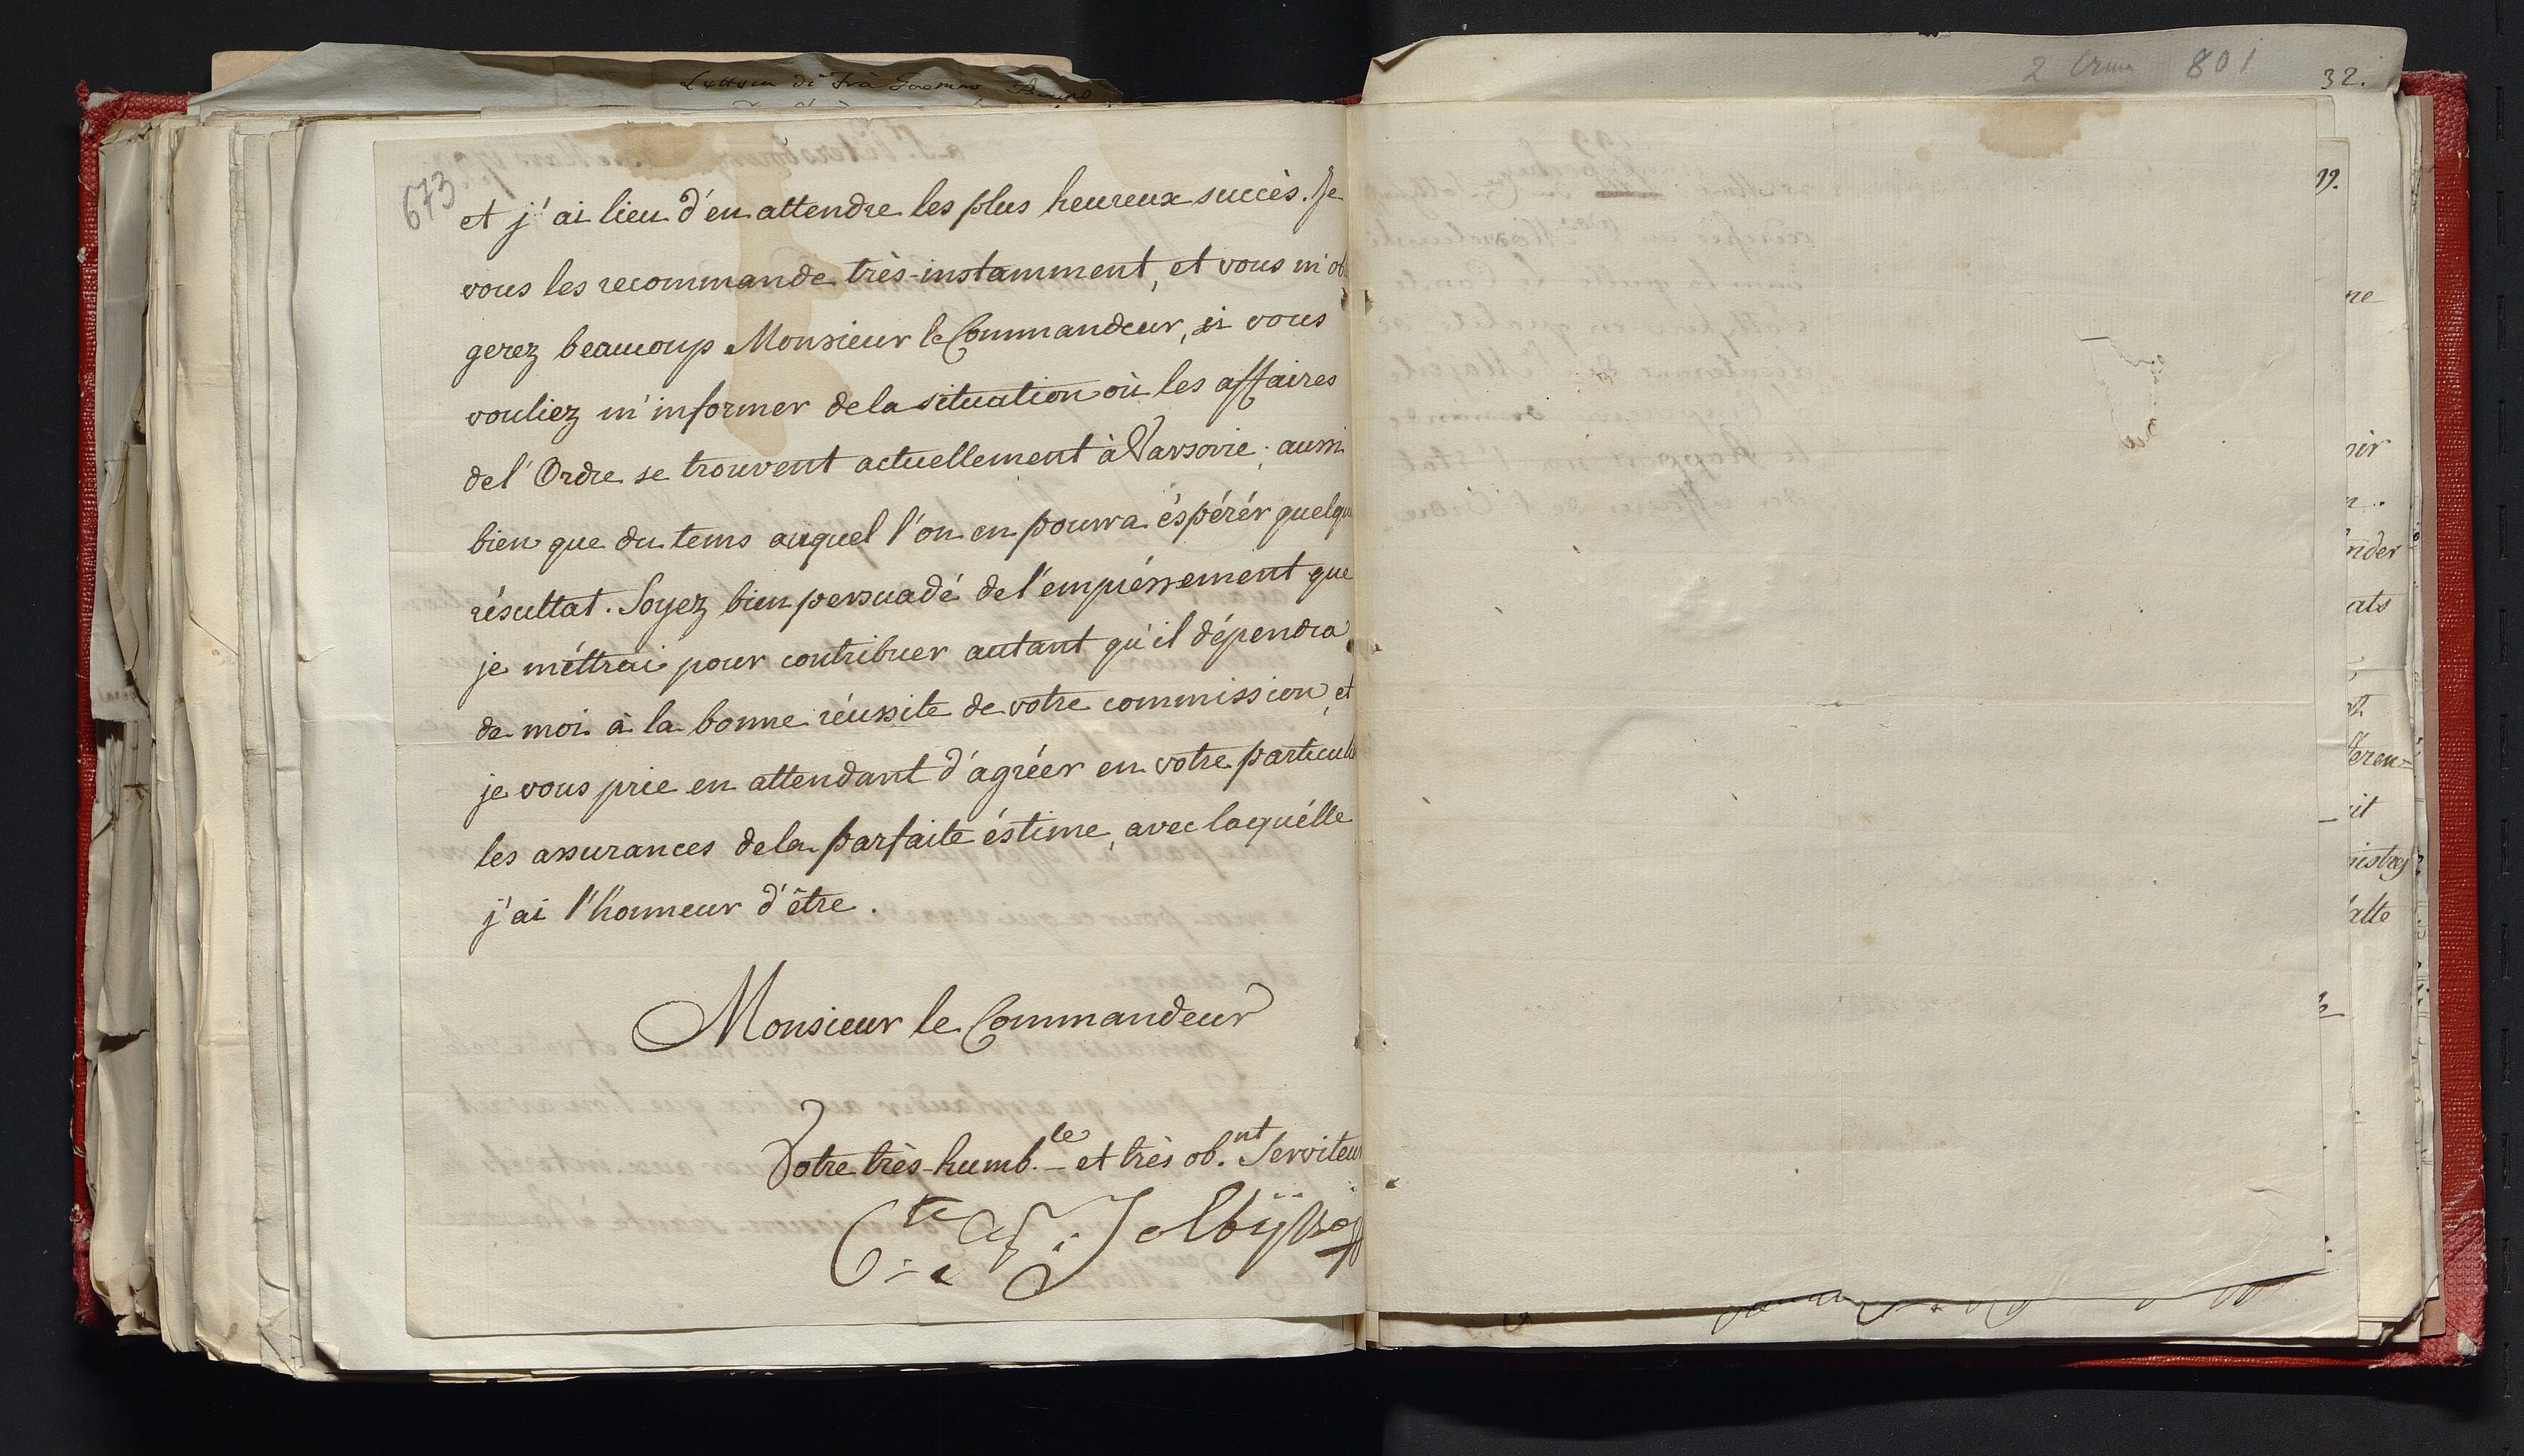 673
et j'ai lieu d'en attendre les plus heureux succès. Je
vous les recommande très-instamment, et vous m'ob
gerez beaucoup Monsieur le Commandeur, si vous
vouliez m'informer de la situation où les affaires
de l'Ordre se trouvent actuellement à Varsovie; aussi
bien que du tems auquel l'on en pourra éspérér quelqu
résultat. Soyez bien persuadé de l'empréssement que
je méttrai pour contribuer autant qu'il dépendra
de moi à la bonne réussite de votre commission, et
je vous prie en attendant d'agréer en votre particul
les assurances de la parfaite éstime, avec laquélle
j'ai l'honneur d'être.
Monsieur le Commandeur
Votre très-humb.le et très ob.nt Serviteur
Cte
801
32.
99.
ne
oir
nder
ats
it